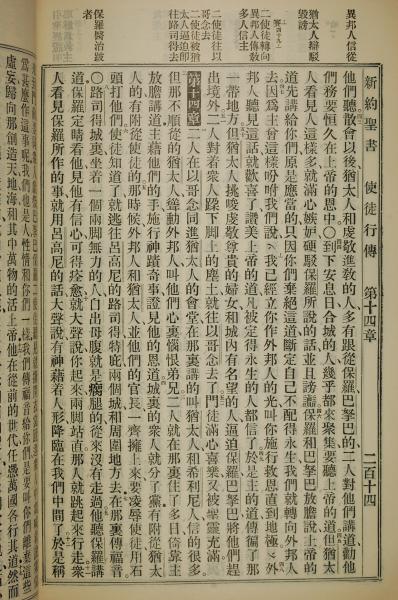 新約聖書 使徒行傳 第十四章 二百十四
異邦人信從
猶太人辯駁
毀謗
二使徒轉向
異邦人傳教
多人信主
二使徒往以
哥念去
二使徒被猶
太人逼迫即
往路司得去
保羅醫治跛
者
他們聽散會以後猶太人和虔敬進敎的人多有跟從保羅巴拏巴的二人對他們講道勸他
們務要恒久在上帝的恩中○到下安息日合城的人幾乎都來聚集要聽上帝的道但猶太
人看見人這樣多就滿心嫉妒硬駁保羅所說的話並且謗讟保羅和巴拏巴放膽說上帝的
道先講給你們原是應當的只因你們棄絕這道斷定自己不配得永生我們就轉向外邦人
去因爲主曾這樣吩咐我們說我已經立你作外邦人的光叫你施行救恩直到地極外
邦人聽見這話就歡喜了讚美上帝的道凡被定得永生的人都信了於是主的道傳徧了那
一帶地方但猶太人挑唆虔敬尊貴的婦女和城內有名望的人逼迫保羅巴拏巴將他們趕
出境外二人對着衆人跺下脚上的塵土就往以哥念去了門徒滿心喜樂又被聖靈充滿
第十四章 二人在以哥念同進猶太人的會堂在那裏講的叫猶太人和希利尼人信的很多
但那不順從的猶太人聳動外邦人叫他們心裏惱恨弟兄二人就在那裏住了多日倚靠主
放膽講道主藉他們的手施行神蹟奇事證見他的恩道城裏的衆人就分了黨有附從猶太
人的有附從使徒的那時候外邦人和猶太人並他們的官長一齊擁上來要凌辱使徒用石
頭打他們使徒知道了就逃往呂高尼的路司得特庇兩個城和周圍地方去在那裏傳福音
○路司得城裏坐着一個兩脚無力的人自出母腹就是瘸腿的從來沒有走過他聽保羅講
道保羅定睛看他見他有信心可得痊愈就大聲說你起來兩脚站直那人就跳起來行走衆
人看見保羅所作的事就用呂高尼的話大聲說有神藉着人形降臨在我們中間了於是稱
爲甚麼作這事呢我們也是人性情和你們一樣我們傳福音給你們是要叫你們離棄這些
虛妄歸向那創造天地海和其中萬物的活上帝他在從前的世代任憑萬國各行其道然而